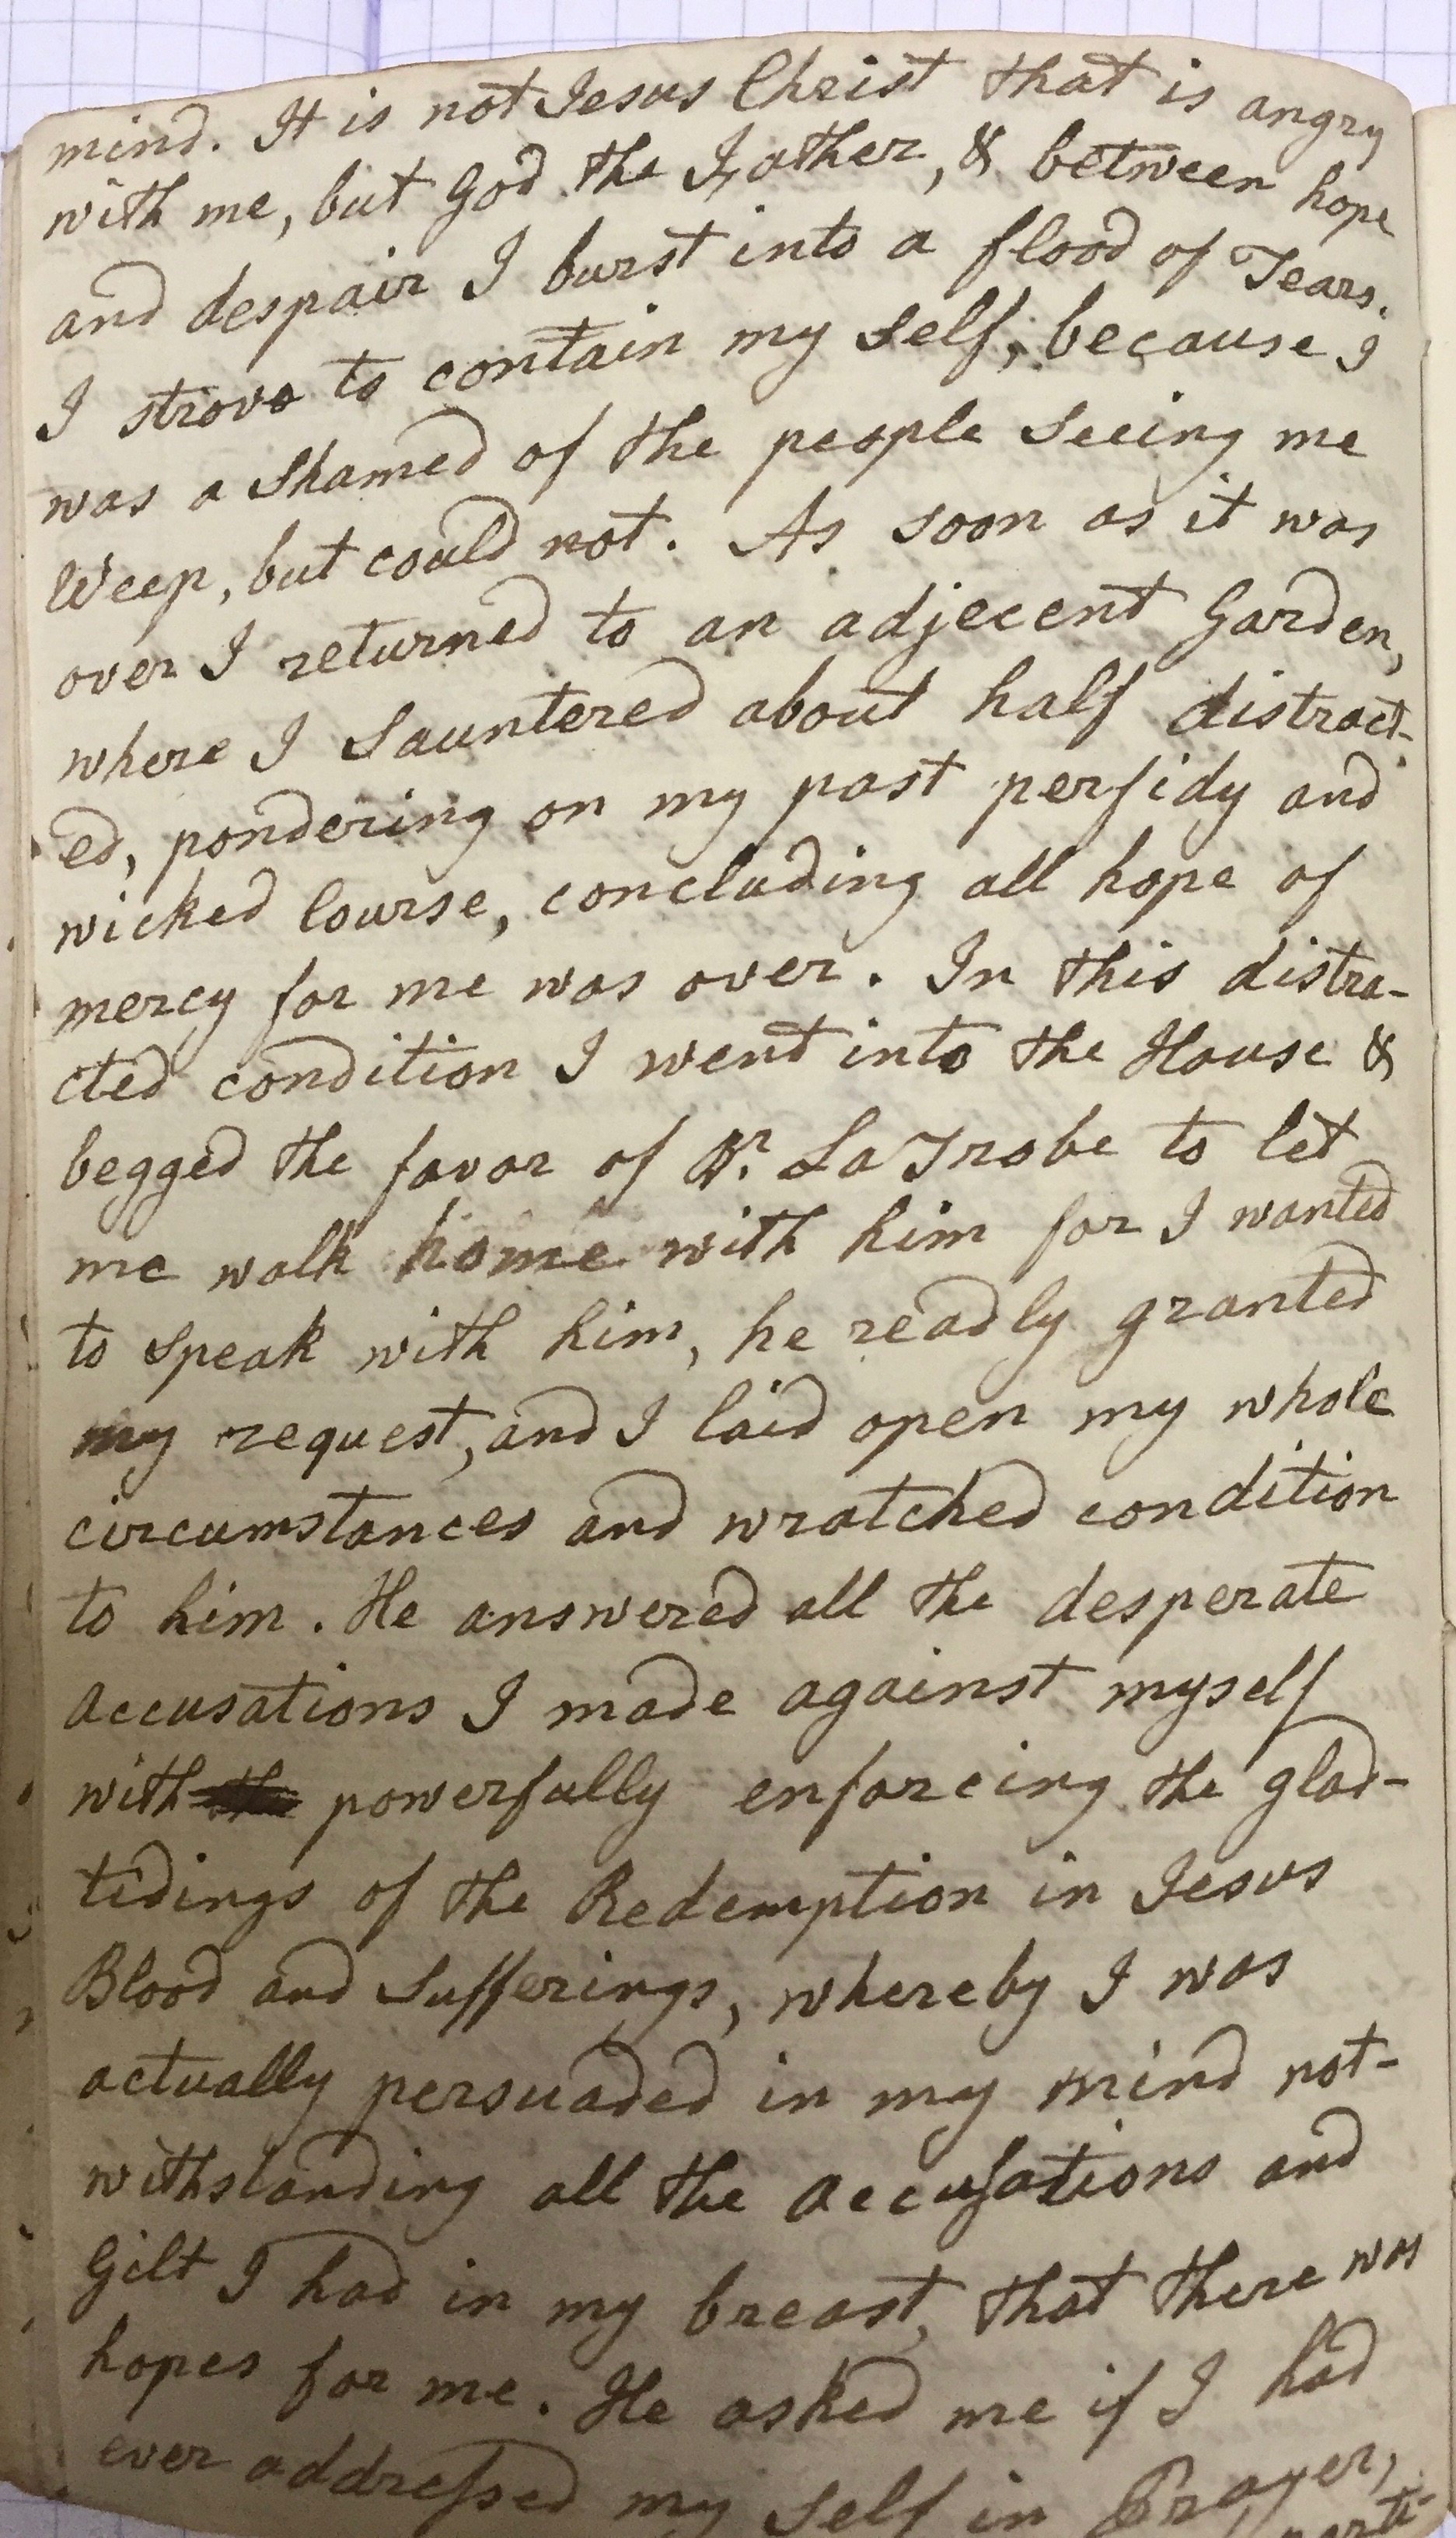 mind. It is not Jesus Christ that is angry
with me, but God the Father, & between hope
and despair I burst into a flood of Tears.
I strove to contain my self, because I
was a shamed of the people seeing me
Weep, but could not. As soon as it was
over I returned to an adjecent Garden,
where I Sauntered about half distract-
ed, pondering on my past perfidy and
wicked Course, concluding all hope of
mercy for me was over. In this distra-
cted condition I went into the House &
begged the favor of Br. La Trobe to let
me walk home with him for I wanted
to speak with him, he readly granted
my request, and I laid open my whole
circumstances and wratched condition
to him. He answered all the desperate
accusations I made against myself
with powerfully enforcing the glad-
tidings of the Redemption in Jesus
Blood and Sufferings, whereby I was
actually persuaded in my mind not-
withstanding all the accusations and
Gilt I had in my breast, that there was
hopes for me. He asked me if I had
ever addressed my self in Prayer,
parti-